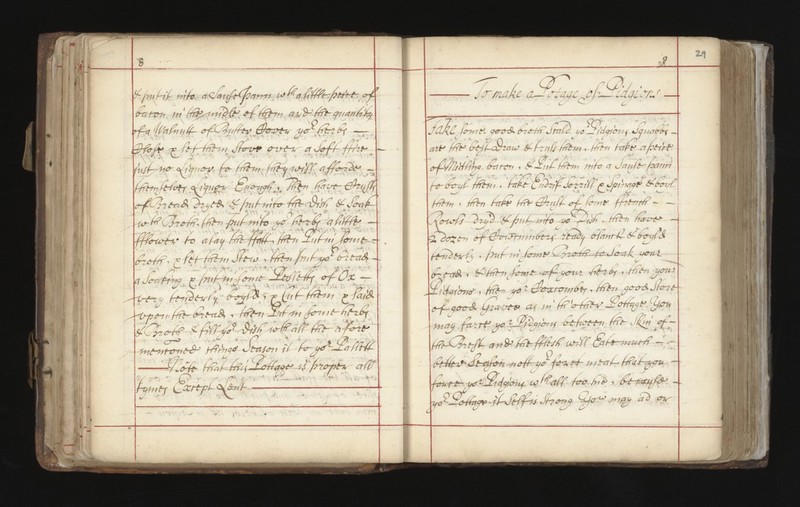 8
& put it into a Sause pann wth a little peice of
bacon in the midle of them and the quantity
of a Walnutt of Butter Cover yor herbs
Close & let them Stove over a Soft ffire
put no Liquor to them they will afforde
themselves Liquor Enough, then have Crusts
of Bread dryed & put into the Dish & Soak
wth Broth then put into yor herbs a little
fflower to alay the ffatt, then Put in some
broth, & let them Stew, then put yor bread
a Soaking & put in some Palletts of Ox
very tenderly boyl'd, Cutt them & laid
upon the bread, then Put in some herbs
& Broth & fill yor dish wth all the afore
mentioned things Season it to yor Pallett
Note that this Pottage is proper all
tymes Except Lent
8
24
To make a Potage of Pidgions
Take some good broth Scald yor Pidgions, Squabs
are the best draw & truss them, then take a peice
of bacon, & Put them into a Sause pann
to boyl them, take Endiff Sorrill & Spinage & boyl
them, then take the Crust of some ffrench
Rowls dry'd & put into yor Dish, then have
2 dozen of Cowcumbers ready blanch'd & boyl'd
tenderly, put in some Broth to Soak your
bread, & then some of your herbs, then your
Pidgions, then yor Coxcombs, then good store
of good Gravee as in th' other Pottage You
may farce yor Pidgions between the Skin of
the Brest and the fflesh will Eate much
better Season nott yor force meat that you
force yor Pidgions wth all too hid, because
yor Pottage it Self is strong You may ad or